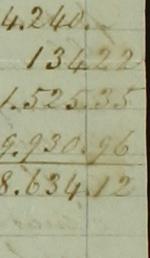 4.240.
13422
1.525.35
9.930.96
8.634.12